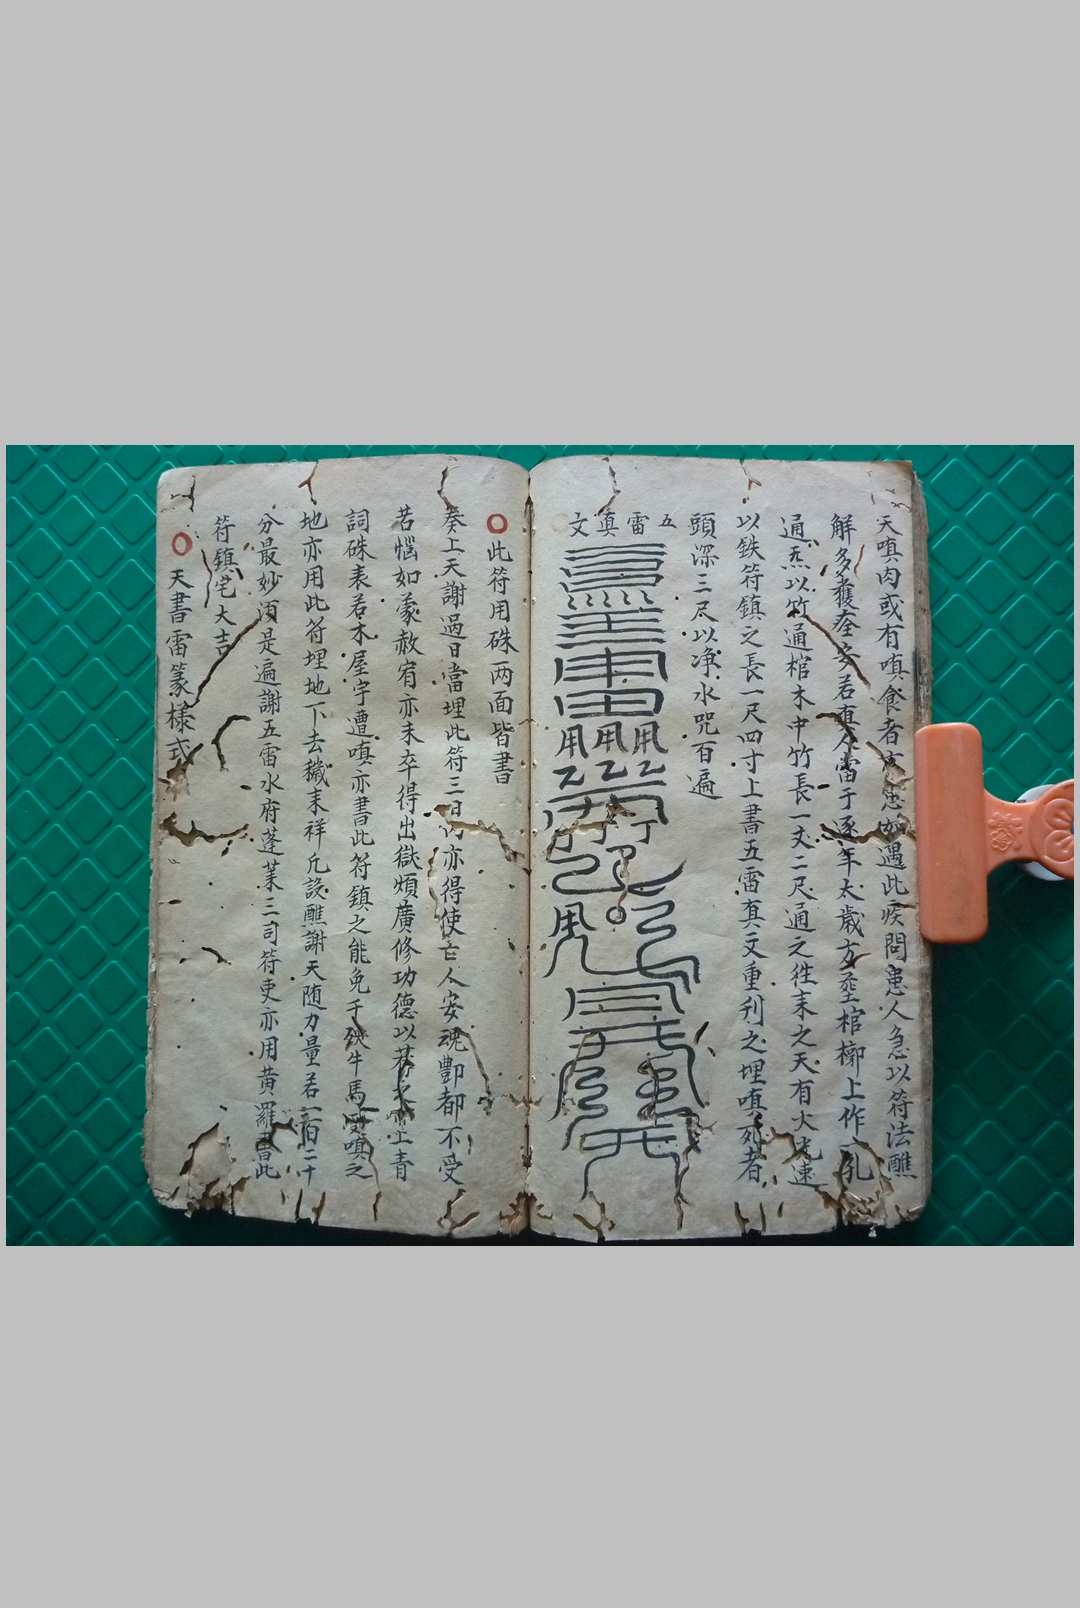 天嗔肉或有嗔食者　患如遇此疾問患人急以符法醮
解多獲痊安若直人當于逐年太歲方壑棺槨上作一孔
通炁以竹通棺木中竹長一丈二尺通之徃耒之天有火光速
以鉄符鎮之長一尺四寸上書五雷真文重刋之埋嗔死者
頭深三尺以净水咒百遍
五雷真文
此符用硃两面皆書
奏上天謝過日當埋此符三日内亦得使亡人安魂酆都不受
苦惱如䝉赦宥亦未卒得出獄煩廣修功德以　上青
詞硃表若木屋宇遭嗔亦書此符鎮之能免于　牛馬　嗔之
地亦用此符埋地下去穢耒祥凢設醮謝天随力量若一百二十
分最妙須是遍謝五雷水府蓬萊三司符吏亦用黄羅書此
符鎮宅大吉
天書雷篆樣式